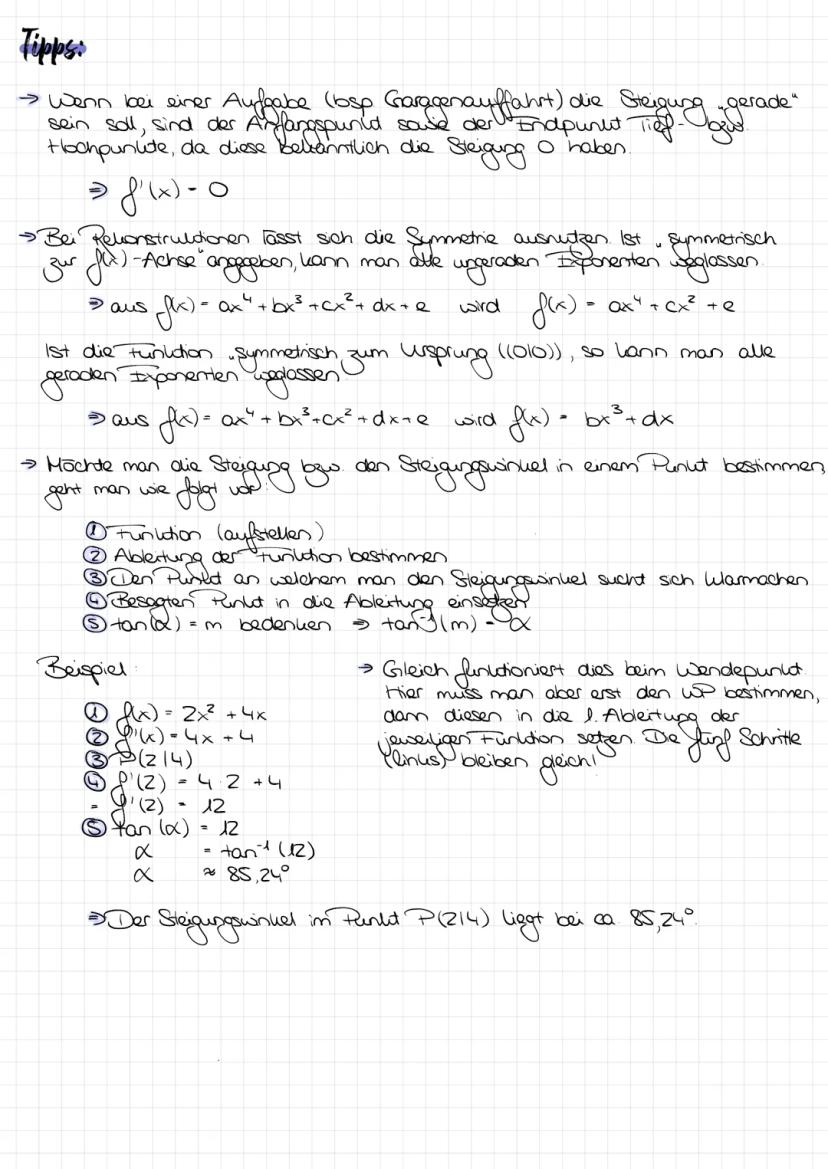 Tipps:
→ Wenn bei einer Aufgabe (bsp Garagenauffahrt) die Steigung „gerade“
sein soll, sind der Anfangspunkt sowie der Endpunkt Tief- bzw.
Hochpunkte, da diese bekanntlich die Steigung 0 haben.
⇒ f'(x) = 0
→ Bei Rekonstruktionen lässt sich die Symmetrie ausnutzen. Ist „symmetrisch
zur f(x)-Achse“ angegeben, kann man alle ungeraden Exponenten weglassen.
⇒ aus f(x) = ax⁴ + bx³ + cx² + dx + e wird f(x) = ax⁴ + cx² + e
Ist die Funktion „symmetrisch zum Ursprung ((0|0)), so kann man alle
geraden Exponenten weglassen.
⇒ aus f(x) = ax⁴ + bx³ + cx² + dx + e wird f(x) = bx³ + dx
→ Möchte man die Steigung bzw. den Steigungswinkel in einem Punkt bestimmen,
geht man wie folgt vor:
① Funktion (aufstellen)
② Ableitung der Funktion bestimmen
③ Den Punkt an welchem man den Steigungswinkel sucht sich klarmachen
④ Besagten Punkt in die Ableitung einsetzen
⑤ tan(α) = m bedenken ⇒ tan⁻¹(m) = α
Beispiel:
① f(x) = 2x² + 4x
② f'(x) = 4x + 4
③ P(2|4)
④ f'(2) = 4 · 2 + 4
= f'(2) = 12
⑤ tan(α) = 12
α = tan⁻¹(12)
α ≈ 85,24°
→ Gleich funktioniert dies beim Wendepunkt.
Hier muss man aber erst den WP bestimmen,
dann diesen in die 1. Ableitung der
jeweiligen Funktion setzen. Die fünf Schritte
(links) bleiben gleich!
⇒ Der Steigungswinkel im Punkt P(2|4) liegt bei ca. 85,24°.